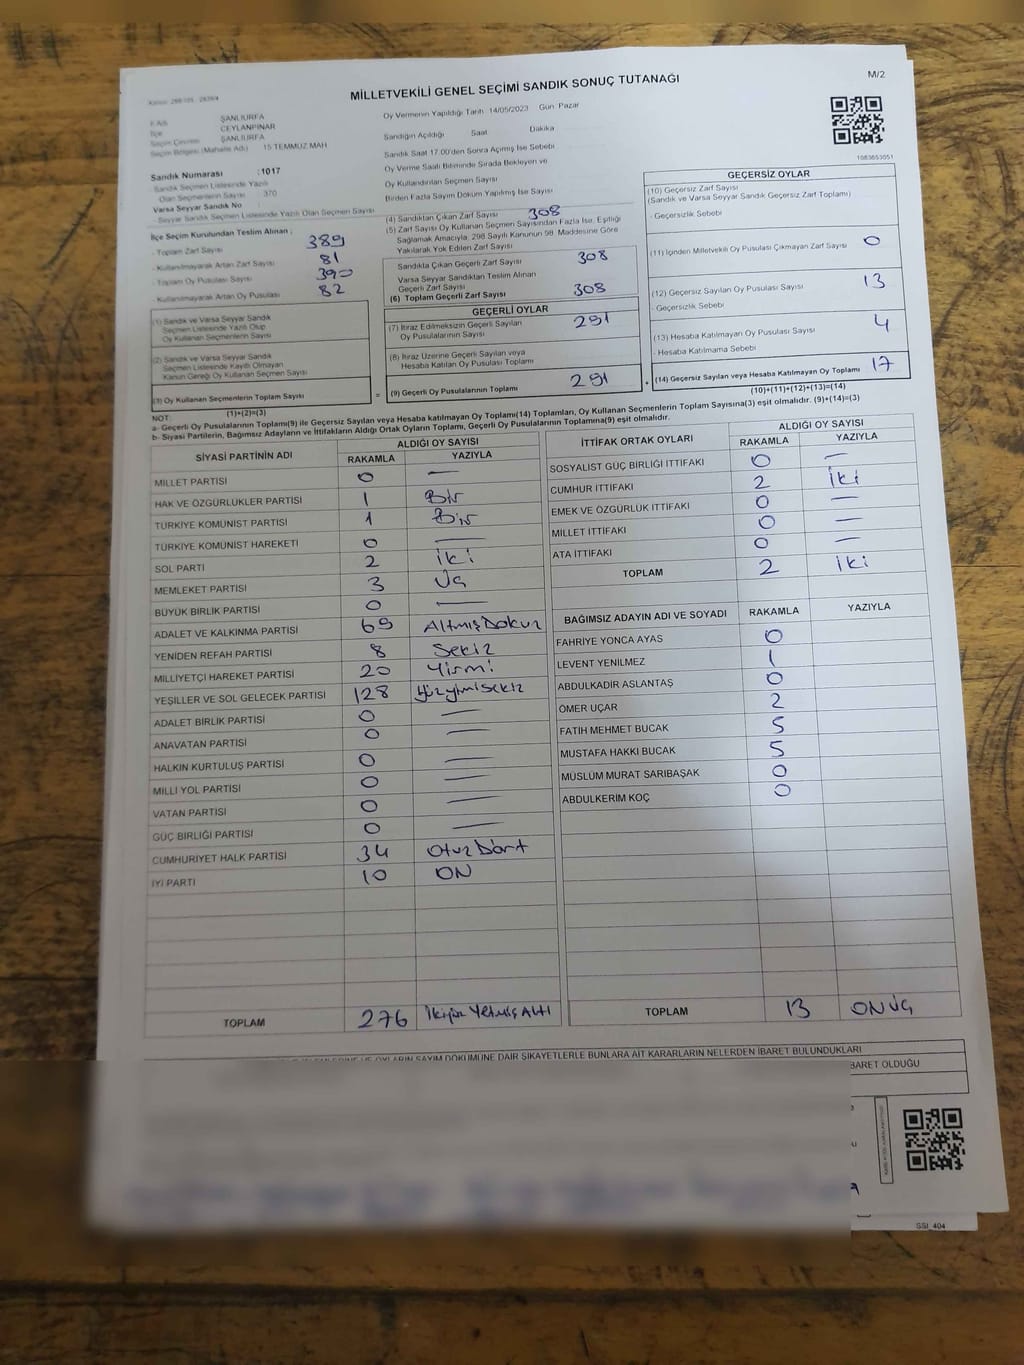 MİLLETVEKİLİ GENEL SEÇİMİ SANDIK SONUÇ TUTANAĞI
M/2
İli/Adı ŞANLIURFA
İlçe CEYLANPINAR
Seçim Çevresi ŞANLIURFA
Seçim Bölgesi (Mahalle Adı) 15 TEMMUZ MAH
Sandık Numarası :1017
- Sandık Seçmen Listesinde Yazılı
Olan Seçmenlerin Sayısı 370
Varsa Seyyar Sandık No
- Seyyar Sandık Seçmen Listesinde Yazılı Olan Seçmen Sayısı
İlçe Seçim Kurulundan Teslim Alınan ;
- Toplam Zarf Sayısı 389
- Kullanılmayarak Artan Zarf Sayısı 81
- Toplam Oy Pusulası Sayısı 390
- Kullanılmayarak Artan Oy Pusulası 82
(1) Sandık ve Varsa Seyyar Sandık
Seçmen Listesinde Yazılı Olup
Oy Kullanan Seçmenlerin Sayısı
(2) Sandık ve Varsa Seyyar Sandık
Seçmen Listesinde Kayıtlı Olmayan
Kanun Gereği Oy Kullanan Seçmen Sayısı
(3) Oy Kullanan Seçmenlerin Toplam Sayısı =
(1)+(2)=(3)
Oy Vermenin Yapıldığı Tarih 14/05/2023 Gün Pazar
Sandığın Açıldığı Saat Dakika
Sandık Saat 17.00'den Sonra Açılmış İse Sebebi
Oy Verme Saati Bitiminde Sırada Bekleyen ve
Oy Kullandırılan Seçmen Sayısı
Birden Fazla Sayım Döküm Yapılmış İse Sayısı
(4) Sandıktan Çıkan Zarf Sayısı 308
(5) Zarf Sayısı Oy Kullanan Seçmen Sayısından Fazla İse, Eşitliği
Sağlamak Amacıyla, 298 Sayılı Kanunun 98. Maddesine Göre
Yakılarak Yok Edilen Zarf Sayısı
Sandıkta Çıkan Geçerli Zarf Sayısı 308
Varsa Seyyar Sandıktan Teslim Alınan
Geçerli Zarf Sayısı
(6) Toplam Geçerli Zarf Sayısı 308
GEÇERLİ OYLAR
(7) İtiraz Edilmeksizin Geçerli Sayılan
Oy Pusulalarının Sayısı 291
(8) İtiraz Üzerine Geçerli Sayılan veya
Hesaba Katılan Oy Pusulası Toplamı
(9) Geçerli Oy Pusulalarının Toplamı 291 +
1083653051
GEÇERSİZ OYLAR
(10) Geçersiz Zarf Sayısı
(Sandık ve Varsa Seyyar Sandık Geçersiz Zarf Toplamı)
- Geçersizlik Sebebi
(11) İçinden Milletvekili Oy Pusulası Çıkmayan Zarf Sayısı 0
(12) Geçersiz Sayılan Oy Pusulası Sayısı 13
- Geçersizlik Sebebi
(13) Hesaba Katılmayan Oy Pusulası Sayısı 4
- Hesaba Katılmama Sebebi
(14) Geçersiz Sayılan veya Hesaba Katılmayan Oy Toplamı 17
(10)+(11)+(12)+(13)=(14)
NOT:
a- Geçerli Oy Pusulasının Toplamı(9) ile Geçersiz Sayılan veya Hesaba katılmayan Oy Toplamı(14) Toplamları, Oy Kullanan Seçmenlerin Toplam Sayısına(3) eşit olmalıdır. (9)+(14)=(3)
b- Siyasi Partilerin, Bağımsız Adayların ve İttifakların Aldığı Ortak Oyların Toplamı, Geçerli Oy Pusulalarının Toplamına(9) eşit olmalıdır.
SİYASİ PARTİNİN ADI ALDIĞI OY SAYISI
RAKAMLA YAZIYLA
MİLLET PARTİSİ 0 —
HAK VE ÖZGÜRLÜKLER PARTİSİ 1 Bir
TÜRKİYE KOMÜNİST PARTİSİ 1 Bir
TÜRKİYE KOMÜNİST HAREKETİ 0 —
SOL PARTİ 2 iki
MEMLEKET PARTİSİ 3 Üç
BÜYÜK BİRLİK PARTİSİ 0 —
ADALET VE KALKINMA PARTİSİ 69 AltmışDokuz
YENİDEN REFAH PARTİSİ 8 Sekiz
MİLLİYETÇİ HAREKET PARTİSİ 20 Yirmi
YEŞİLLER VE SOL GELECEK PARTİSİ 128 yüzyirmisekiz
ADALET BİRLİK PARTİSİ 0 —
ANAVATAN PARTİSİ 0 —
HALKIN KURTULUŞ PARTİSİ 0 —
MİLLİ YOL PARTİSİ 0 —
VATAN PARTİSİ 0 —
GÜÇ BİRLİĞİ PARTİSİ 0 —
CUMHURİYET HALK PARTİSİ 34 OtuzDört
İYİ PARTİ 10 ON
TOPLAM 276 İkiyüz Yetmiş Altı
İTTİFAK ORTAK OYLARI ALDIĞI OY SAYISI
RAKAMLA YAZIYLA
SOSYALİST GÜÇ BİRLİĞİ İTTİFAKI 0 —
CUMHUR İTTİFAKI 2 iki
EMEK VE ÖZGÜRLÜK İTTİFAKI 0 —
MİLLET İTTİFAKI 0 —
ATA İTTİFAKI 0 —
TOPLAM 2 iki
BAĞIMSIZ ADAYIN ADI VE SOYADI RAKAMLA YAZIYLA
FAHRİYE YONCA AYAS 0
LEVENT YENİLMEZ 1
ABDULKADİR ASLANTAŞ 0
ÖMER UÇAR 2
FATİH MEHMET BUCAK 5
MUSTAFA HAKKI BUCAK 5
MÜSLÜM MURAT SARIBAŞAK 0
ABDULKERİM KOÇ 0
TOPLAM 13 ONÜÇ
OYLARIN SAYIM DÖKÜMÜNE DAİR ŞİKAYETLERLE BUNLARA AİT KARARLARIN NELERDEN İBARET BULUNDUKLARI
BARET OLDUĞU
SSI_404